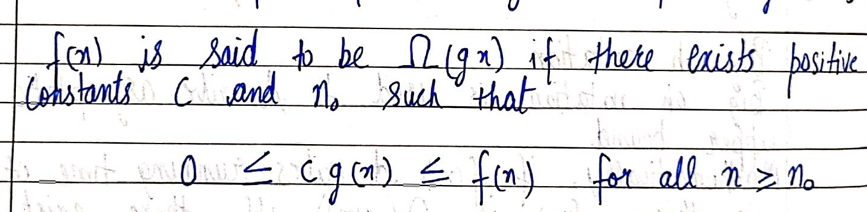 f(n) is said to be Ω(gn) if there exists positive
constants C and n₀ such that
0 ≤ c g(n) ≤ f(n) for all n ≥ n₀